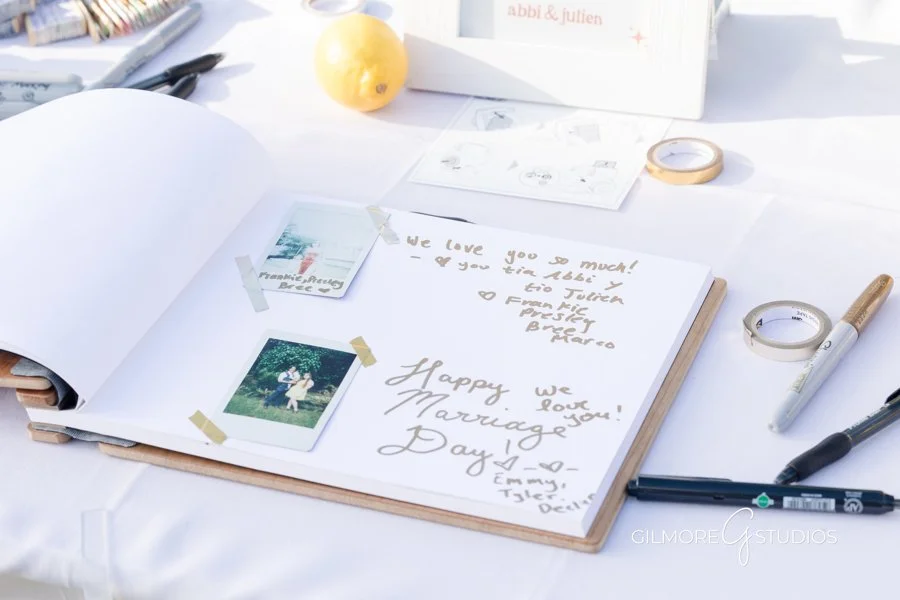 abbi & julien
We love you so much!
- ♡ you tia Abbi y
tio Julien
♡ Frankie
Presley
Bree
Marco
Frankie, Presley
Bree ♡
Happy
Marriage
Day!
we
love
you!
Emmy,
Tyler,
GILMORE G STUDIOS